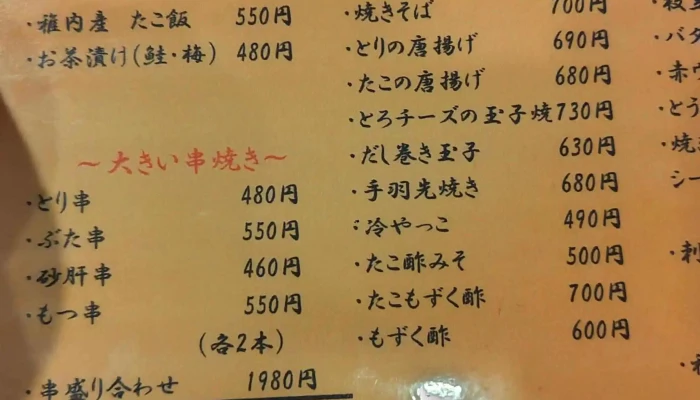 ・稚内産 たこ飯 550円
・お茶漬け(鮭・梅) 480円
～大きい串焼き～
・とり串 480円
・ぶた串 550円
・砂肝串 460円
・もつ串 550円
(各2本)
・串盛り合わせ 1980円
・焼きそば 700円
・とりの唐揚げ 690円
・たこの唐揚げ 680円
・とろチーズの玉子焼730円
・だし巻き玉子 630円
・手羽先焼き 680円
・冷やっこ 490円
・たこ酢みそ 500円
・たこもずく酢 700円
・もずく酢 600円
・バタ
・赤ウ
・とう
・焼き
シー
・刺